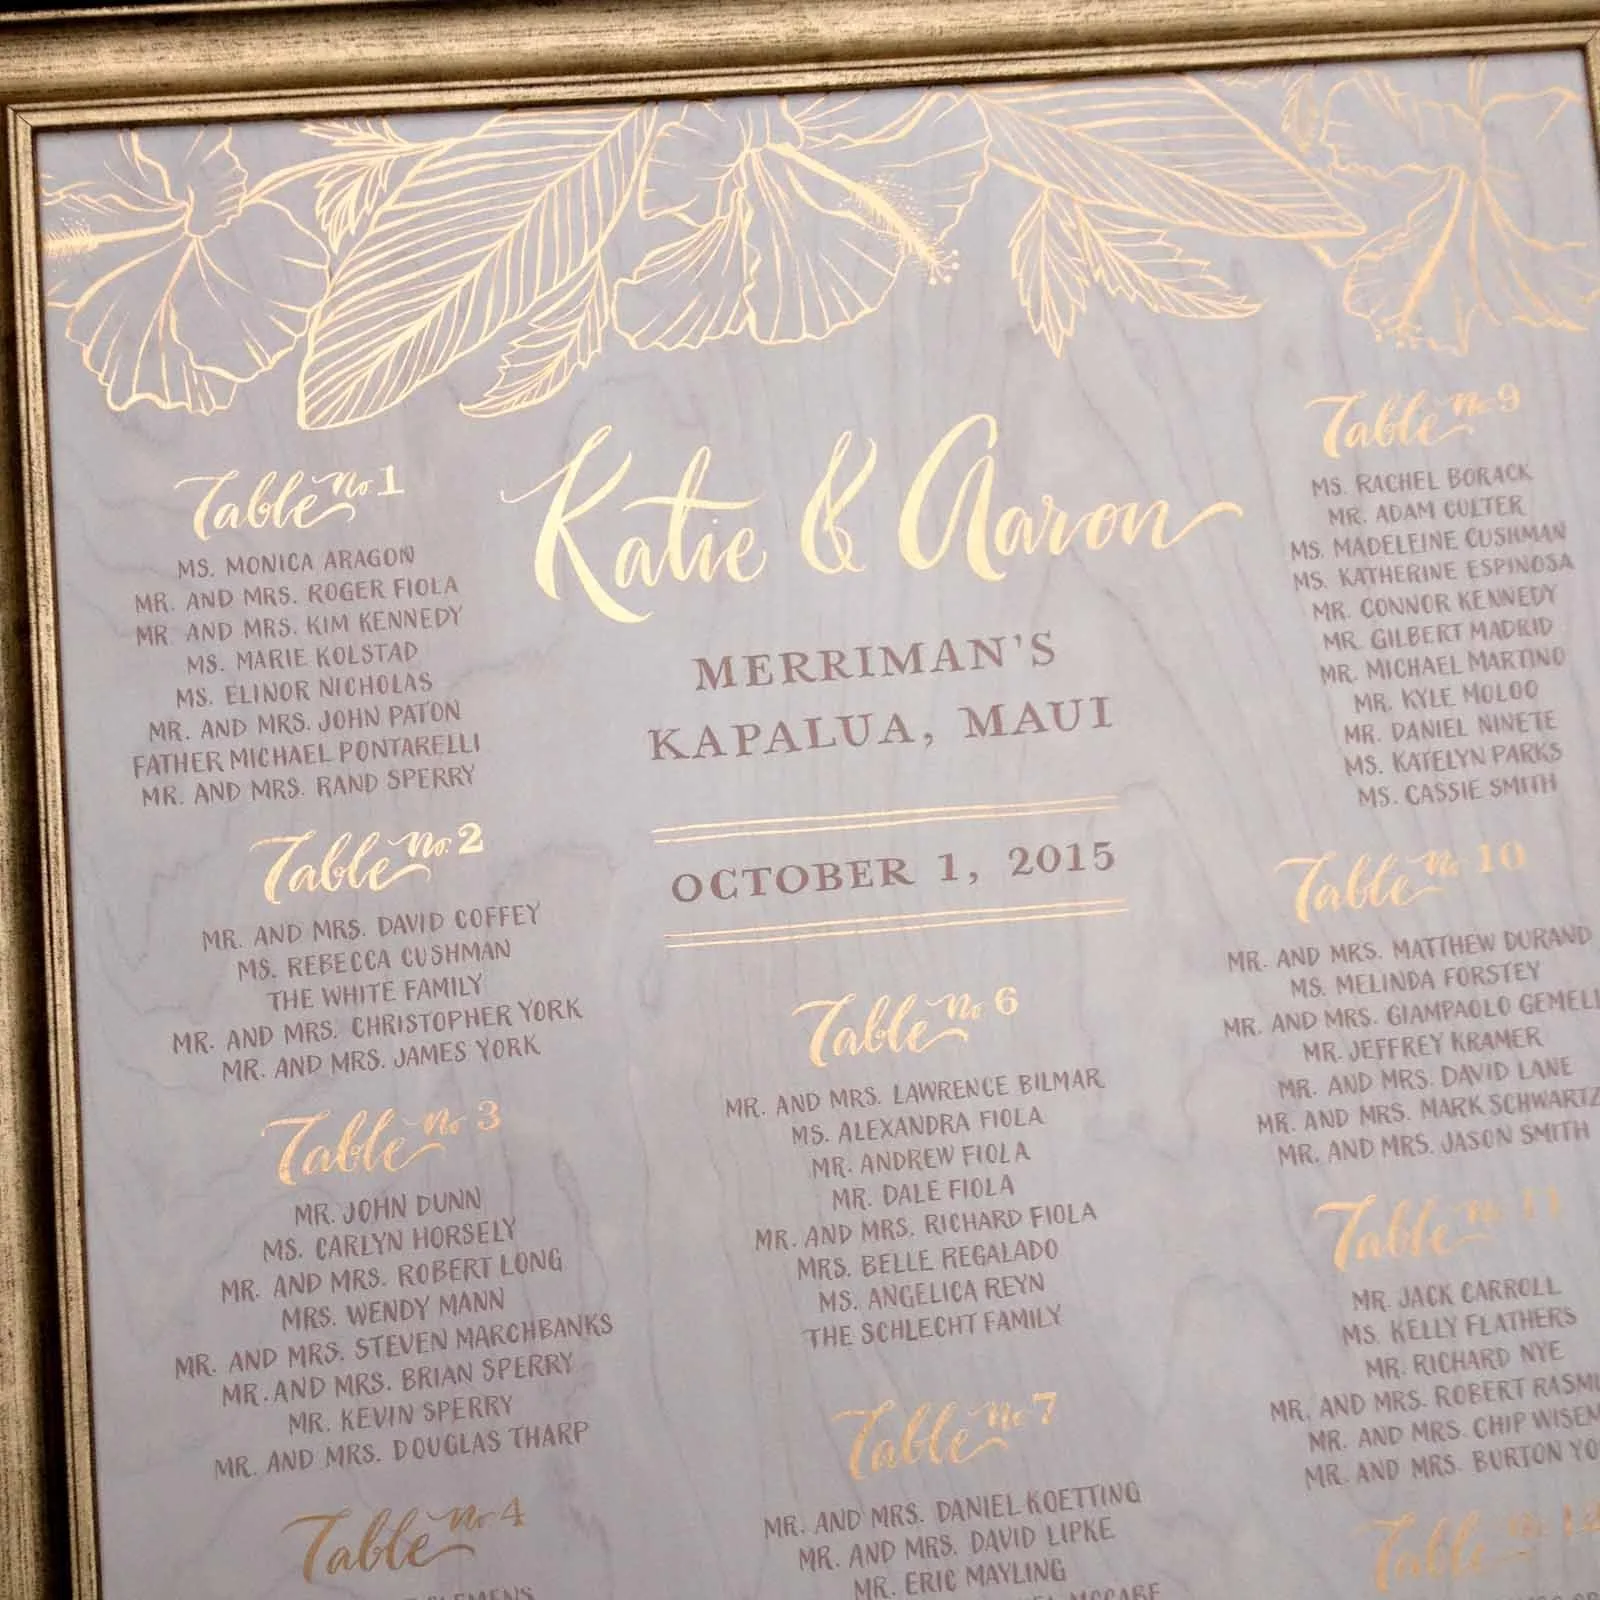 Katie & Aaron
MERRIMAN'S
KAPALUA, MAUI
OCTOBER 1, 2015
Table No. 1
MS. MONICA ARAGON
MR. AND MRS. ROGER FIOLA
MR. AND MRS. KIM KENNEDY
MS. MARIE KOLSTAD
MS. ELINOR NICHOLAS
MR. AND MRS. JOHN PATON
FATHER MICHAEL PONTARELLI
MR. AND MRS. RAND SPERRY
Table No. 2
MR. AND MRS. DAVID COFFEY
MS. REBECCA CUSHMAN
THE WHITE FAMILY
MR. AND MRS. CHRISTOPHER YORK
MR. AND MRS. JAMES YORK
Table No 3
MR. JOHN DUNN
MS. CARLYN HORSELY
MR. AND MRS. ROBERT LONG
MRS. WENDY MANN
MR. AND MRS. STEVEN MARCHBANKS
MR. AND MRS. BRIAN SPERRY
MR. KEVIN SPERRY
MR. AND MRS. DOUGLAS THARP
Table No 4
Table No 6
MR. AND MRS. LAWRENCE BILMAR
MS. ALEXANDRA FIOLA
MR. ANDREW FIOLA
MR. DALE FIOLA
MR. AND MRS. RICHARD FIOLA
MRS. BELLE REGALADO
MS. ANGELICA REYN
THE SCHLECHT FAMILY
Table No 7
MR. AND MRS. DANIEL KOETTING
MR. AND MRS. DAVID LIPKE
MR. ERIC MAYLING
MCCABE
Table No 9
MS. RACHEL BORACK
MR. ADAM CULTER
MS. MADELEINE CUSHMAN
MS. KATHERINE ESPINOSA
MR. CONNOR KENNEDY
MR. GILBERT MADRID
MR. MICHAEL MARTINO
MR. KYLE MOLOO
MR. DANIEL NINETE
MS. KATELYN PARKS
MS. CASSIE SMITH
Table No 10
MR. AND MRS. MATTHEW DURAND
MS. MELINDA FORSTEY
MR. AND MRS. GIAMPAOLO GEMELL
MR. JEFFREY KRAMER
MR. AND MRS. DAVID LANE
MR. AND MRS. MARK SCHWARTZ
MR. AND MRS. JASON SMITH
Table No 11
MR. JACK CARROLL
MS. KELLY FLATHERS
MR. RICHARD NYE
MR. AND MRS. ROBERT RASMU
MR. AND MRS. CHIP WISEM
MR. AND MRS. BURTON YO
Table No 12